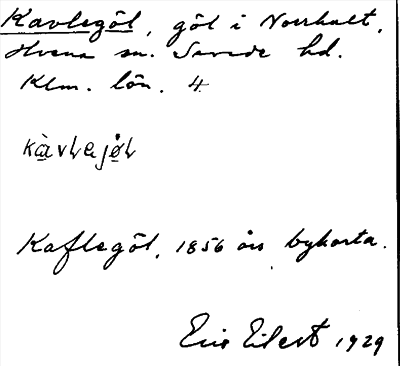 Kavlegöl, göl i Norrhult,
Hvena sn. Sevede hd.
Klm. län. 4
Kaflegöl, 1856 års bykarta.
Eric Eilert 1929